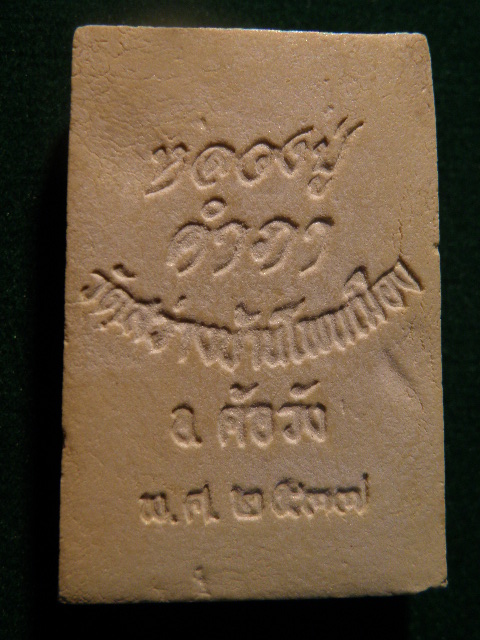 หลวงปู่
คำภา
วัดสว่างบ้านโพนเมือง
อ. ค้อวัง
พ.ศ. ๒๕๓๗